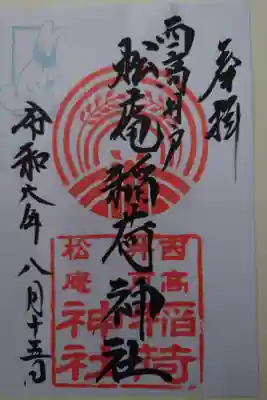 奉拝
西高井戸
松庵稲荷神社
令和六年八月十五日
西高井戸
松庵
稲荷
神社